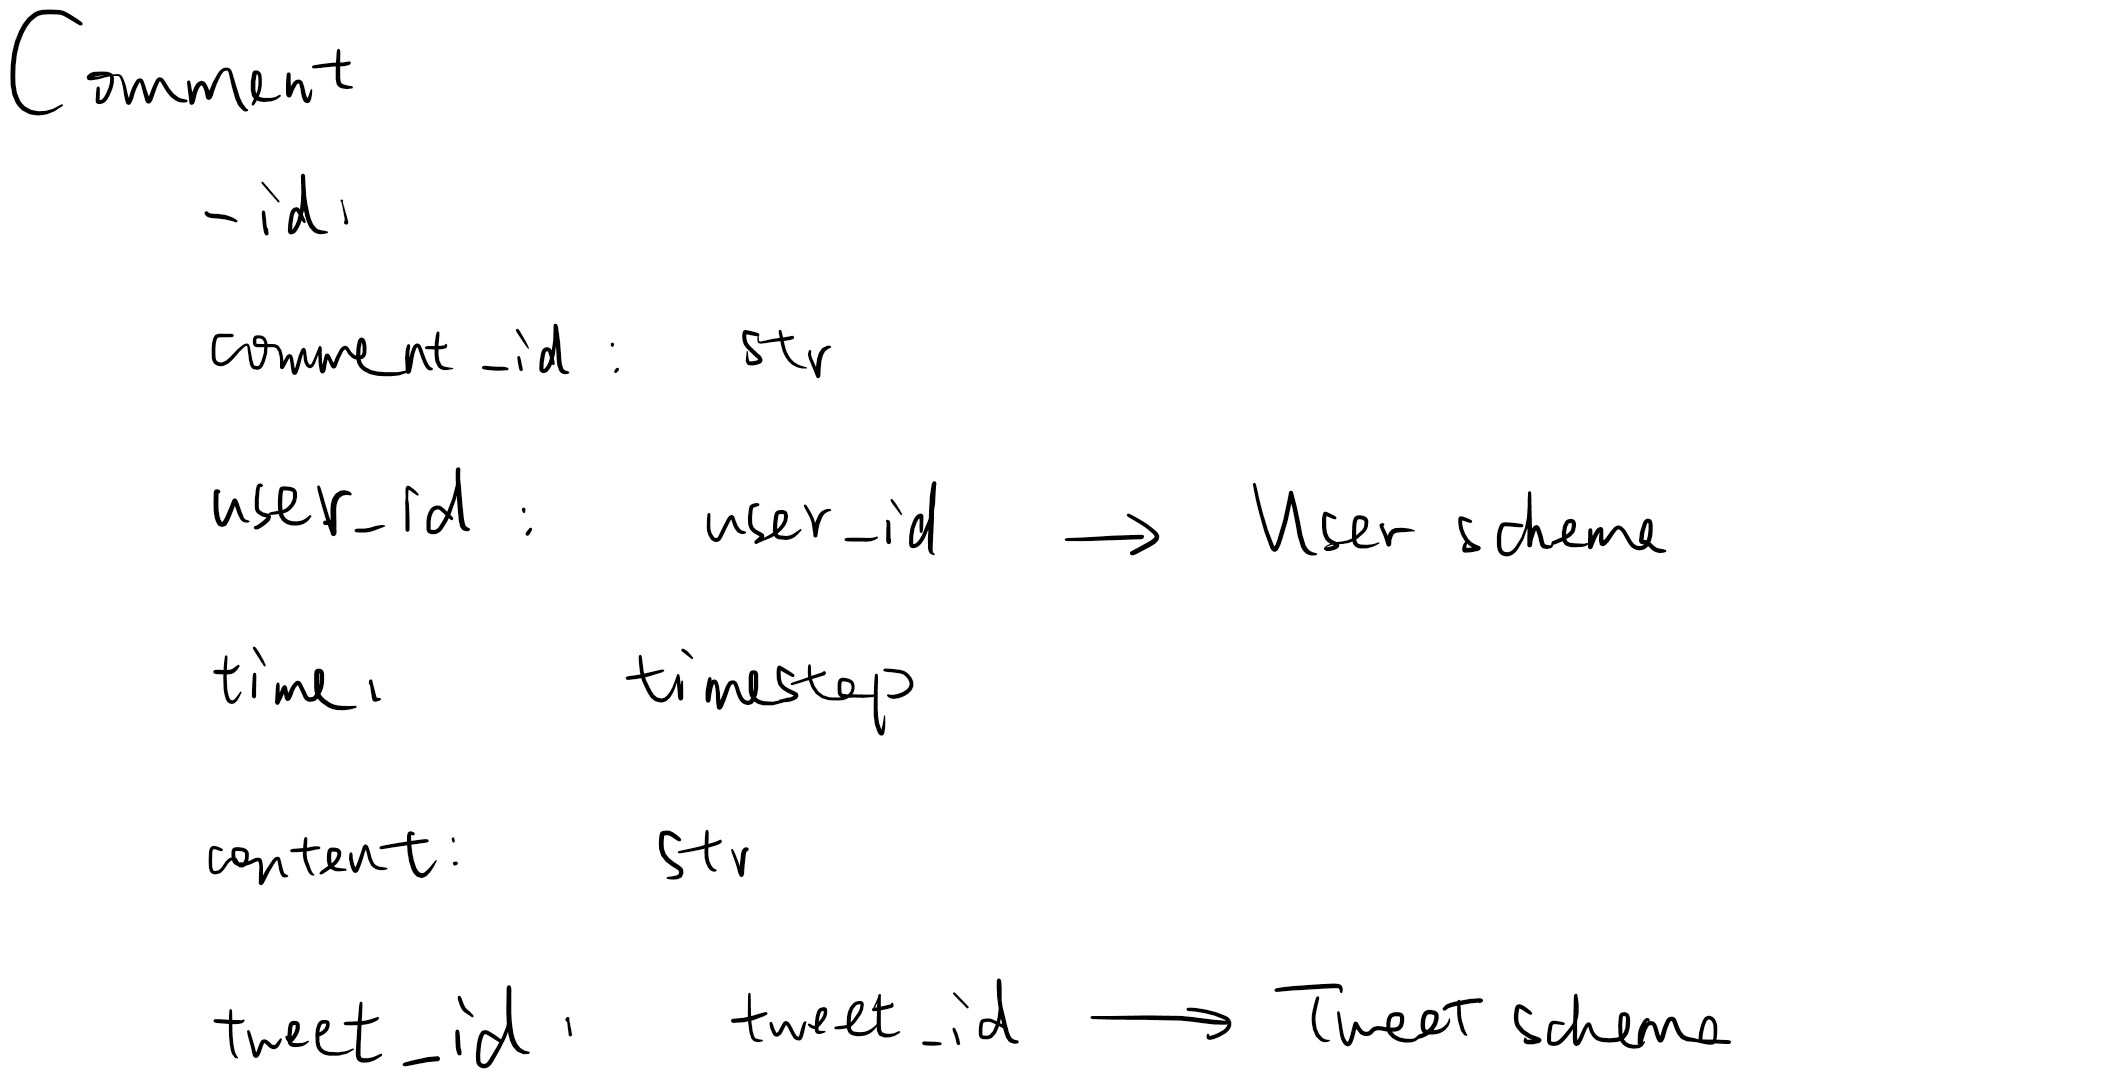 Comment
_id:
comment_id: str
user_id: user_id → User schema
time: timestap
content: str
tweet_id: tweet_id → Tweet schema